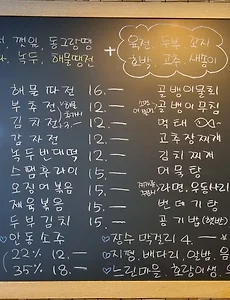 깻잎, 동그랑땡 + 육전, 두부, 꼬지
녹두, 해물땡전 호박, 고추, 새똥이
해물파전 16.— 골뱅이물회
부추전 12.— 골뱅이무침
김치전 12.— 먹태
감자전 12.— 고추장찌개
녹두반대떡 12.— 김치찌개
스팸후라이 15.— 어묵탕
오징어볶음 15.— 라면, 우동사리
제육볶음 15.— 번데기탕
두부김치 15.— 공기밥(햇반)
♡안동소주 ♡장수막걸리 4.—
22% 12.— ♡지평, 배다리, 알밤,
35% 18.— ♡느린마을, 호랑이생,